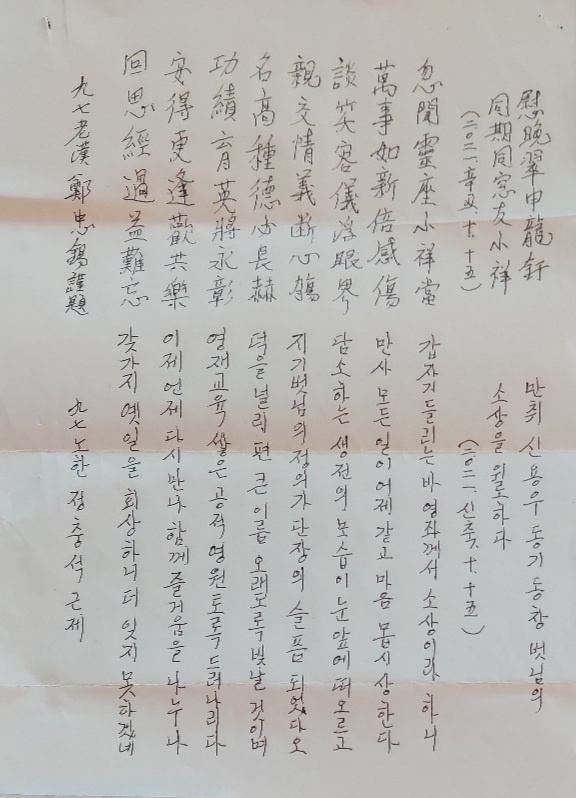 慰晩翠申龍釪
同期同窓友小祥
(二〇二一.辛丑.十.十五)
忽聞靈座小祥當
萬事如新倍感傷
談笑容儀浮眼界
親交情義斷心腸
名高種德必長赫
功績育英將永彰
安得更逢歡共樂
回思經過益難忘
九七老漢 鄭忠錫謹題
만취 신용우 동기 동창 벗님의
소상을 위로하다
(二〇二一.신축.十.十五)
갑자기 들리는 바 영좌께서 소상이라 하니
만사 모든 일이 어제 같고 마음 몹시 상한다
담소하는 생전의 모습이 눈앞에 떠오르고
지기 벗님의 정의가 단장의 슬픔 되었다오
덕을 널리 편 큰 이름 오래도록 빛날 것이며
영재교육 쌓은 공적 영원토록 드러나리다
이제 언제 다시 만나 함께 즐거움을 나누나
갖가지 옛일을 회상하니 더 잊지 못하겠네
九七 노한 정충석 근제